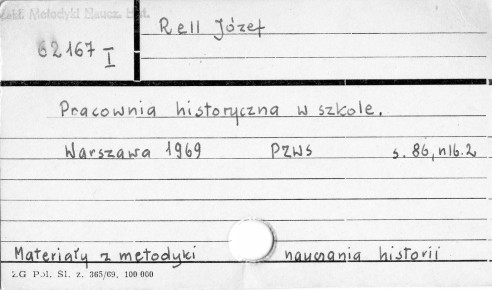 Zakł. Metodyki Naucz. Hist.
Rell Józef
62167 I
Pracownia historyczna w szkole.
Warszawa 1969 PZWS s. 86, nlb. 2
Materiały z metodyki nauczania historii
ZG Pol. Śl. z. 365/69. 100 000